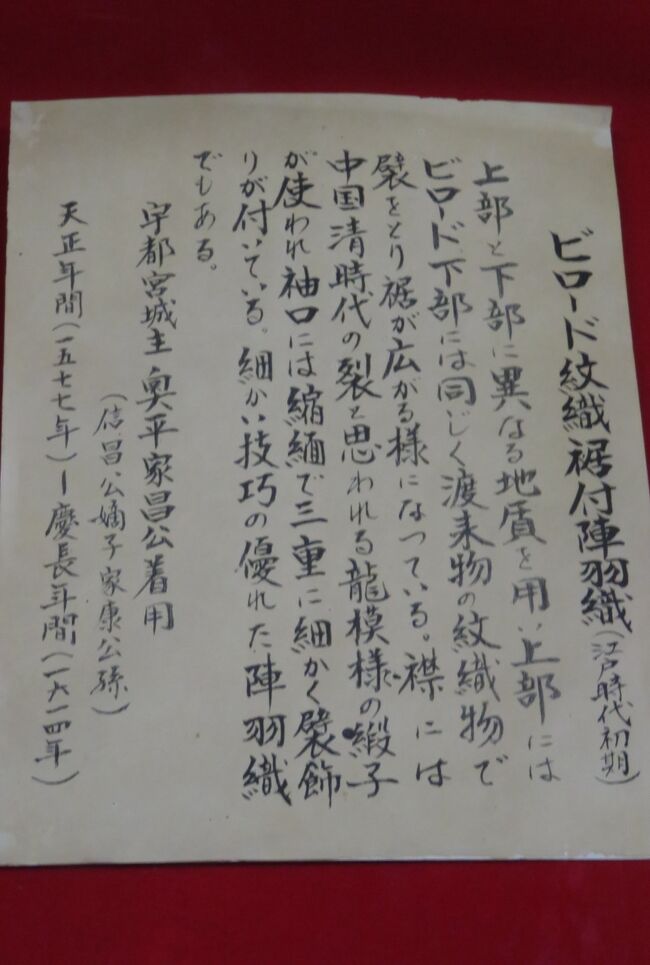 ビロード紋織裾付陣羽織(江戸時代初期)
上部と下部に異なる地質を用い上部には
ビロード、下部には同じく渡来物の紋織物で
襞をとり裾が広がる様になっている。襟には
中国清時代の裂と思われる龍模様の緞子
が使われ袖口には縮緬で三重に細かく襞飾
りが付いている。細かい技巧の優れた陣羽織
でもある。
宇都宮城主 奥平家昌公着用
(信昌公嫡子家康公孫)
天正年間(一五七七年)ー慶長年間(一六一四年)